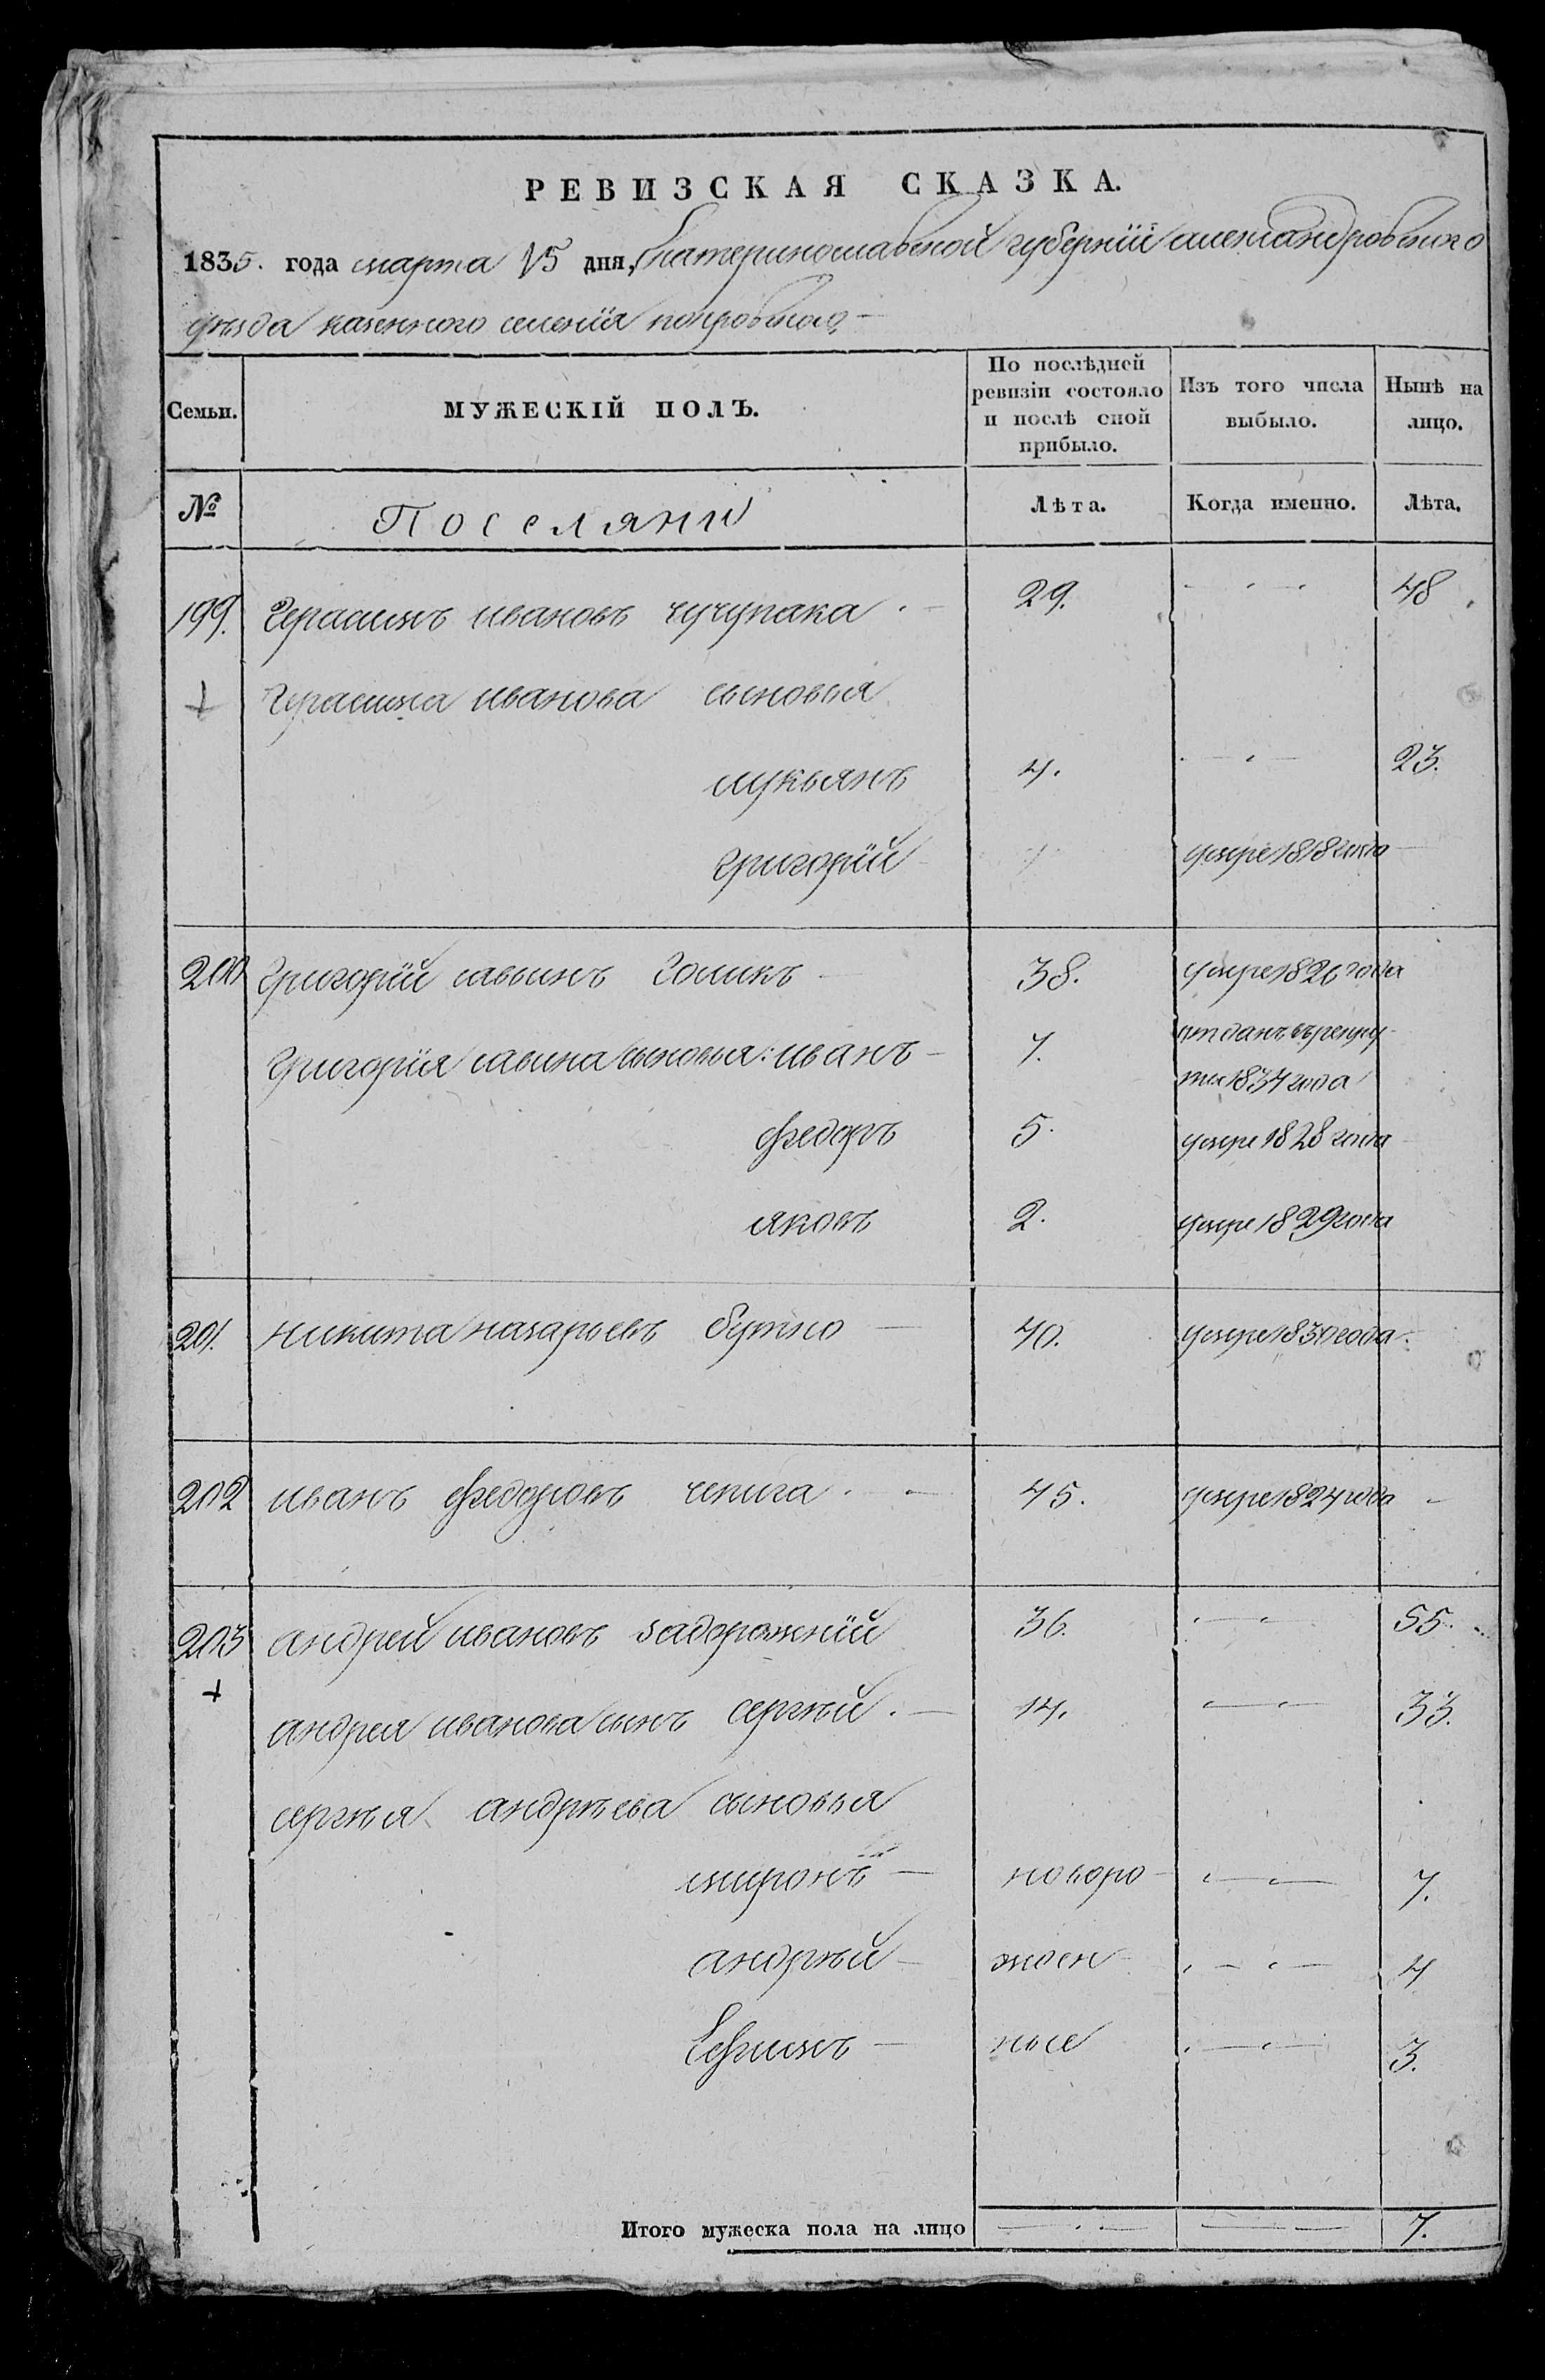 РЕВИЗСКАЯ СКАЗКА.
1835. года марта 15 дня, Екатеринославской губернїи александровского
уѣзда казенного селенїя покровского
Семьи. МУЖЕСКІЙ ПОЛЪ. По послѣдней ревизіи состояло и послѣ оной прибыло. Изъ того числа выбыло. Нынѣ на лицо.
№ Поселяни Лѣта. Когда именно. Лѣта.
199. Герасимъ ивановъ чучупака 29. 48
Герасима иванова сыновья
лукьянъ 4. 23.
григорїй умре 1818 года
200 Григорїй савинъ Голикъ 38. умре 1826 года
Григорїя савина сыновья: иванъ 7. отданъ върекру
ты 1834 года
федоръ 5. умре 1828 года
яковъ 2. умре 1829 года
201. никита назарьевъ бутко 40. умре 1830 года
202 иванъ федоровъ чепига 45. умре 1824 года
203 андрей ивановъ задорожнїй 36. 55
андрея иванова сынъ сергѣй 14. 33.
сергѣя андрѣева сыновья
миронъ новоро 7.
андрѣй жден 4
Ефимъ ные 3.
Итого мужеска пола на лицо 7.